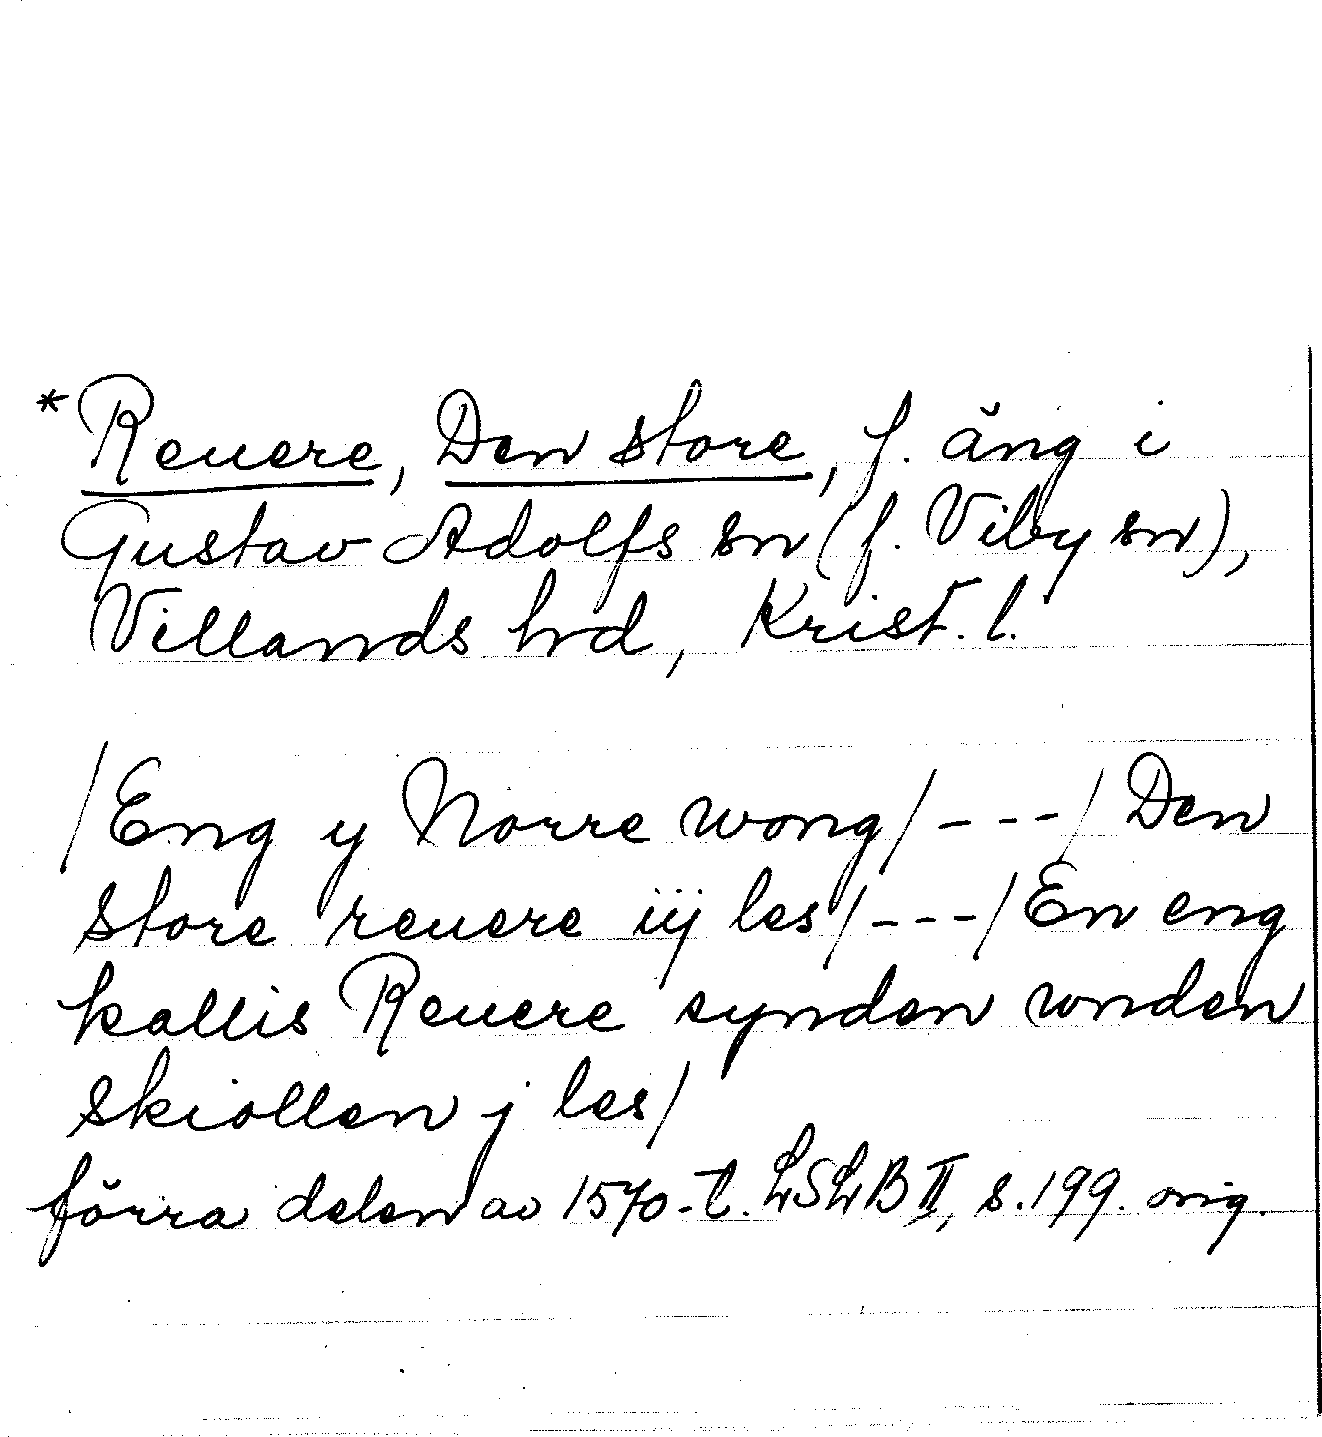 *Reuere, Den store, f. äng i
Gustav Adolfs sn (f. Viby sn),
Villands hd, Krist. l.
/Eng y Norre wong/---/Den
store reuere iij les/---/En eng
kallis Reuere synden wnden
skiollen j les/
förra delen av 1570-t. LSLB II, s. 199. orig.